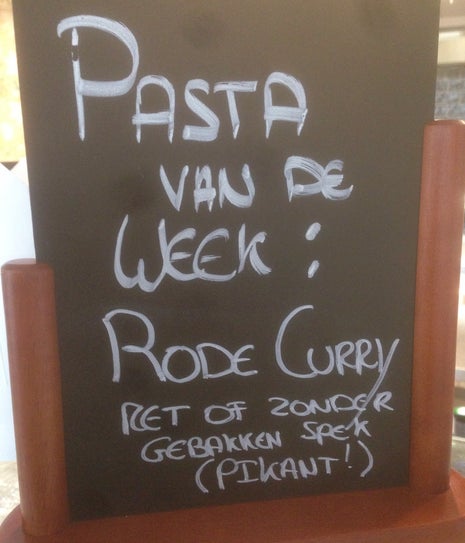 PASTA
VAN DE
WEEK:
RODE CURRY
MET OF ZONDER
GEBAKKEN SPEK
(PIKANT!)